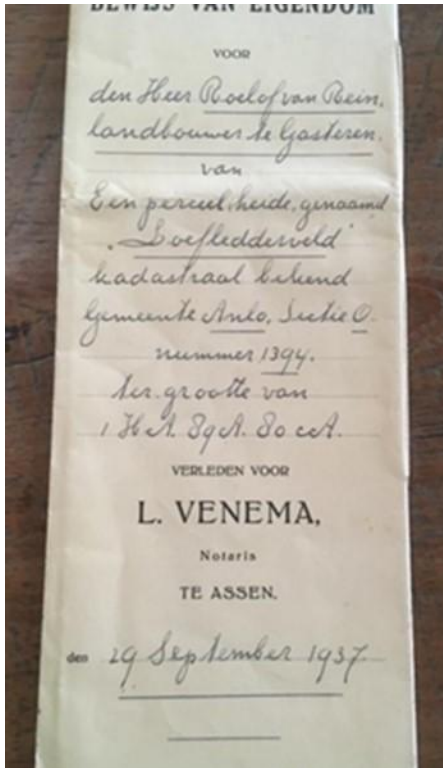 BEWIJS VAN EIGENDOM
VOOR
den Heer Roelof van Rein,
landbouwer te Gasteren.
van
Een perceel heide, genaamd
"Loefledderveld"
kadastraal bekend
Gemeente Anlo, Sectie O.
nummer 1394.
ter grootte van
1 HA. 89A. 80 cA.
VERLEDEN VOOR
L. VENEMA,
Notaris
TE ASSEN.
den 29 September 1937